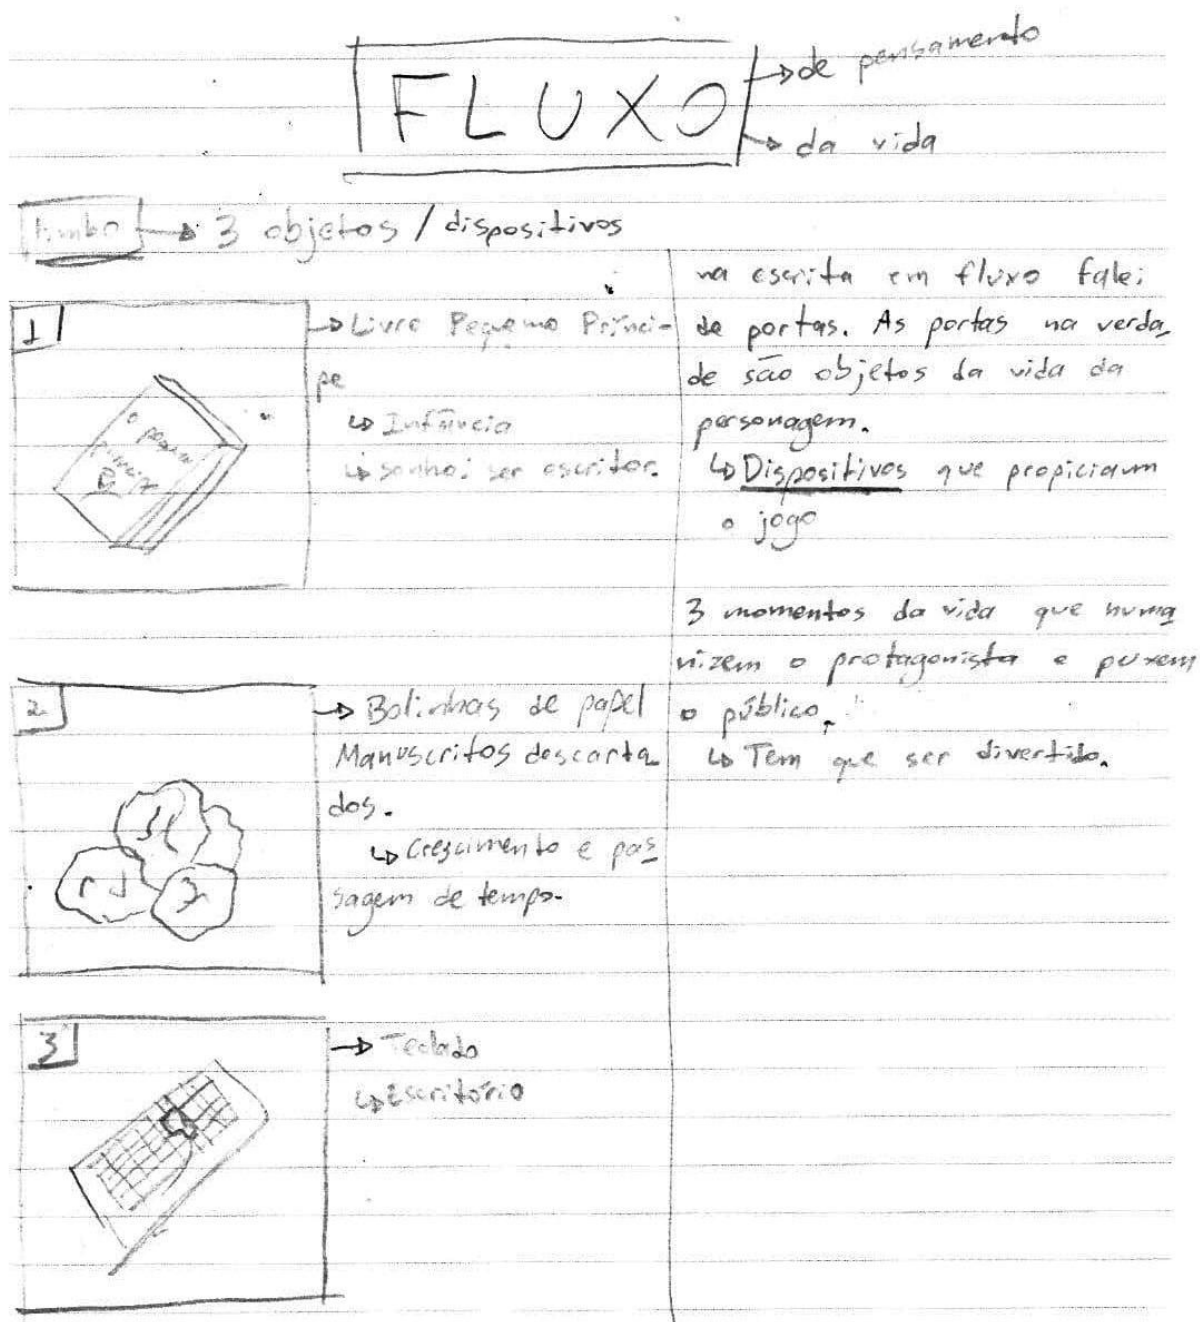 FLUXO
→ de pensamento
→ da vida
limbo → 3 objetos / dispositivos
1
→ Livro Pequeno Prínci-
pe
↳ Infância
↳ sonho: ser escritor.
o pequeno
príncipe
2
→ Bolinhas de papel
Manuscritos descarta
dos.
↳ Crescimento e pas
sagem de tempo.
3
→ Teclado
↳ Escritório
na escrita em fluxo falei
de portas. As portas na verda
de são objetos da vida da
personagem.
↳ Dispositivos que propiciam
o jogo
3 momentos da vida que huma
nizem o protagonista e puxem
o público.
↳ Tem que ser divertido.